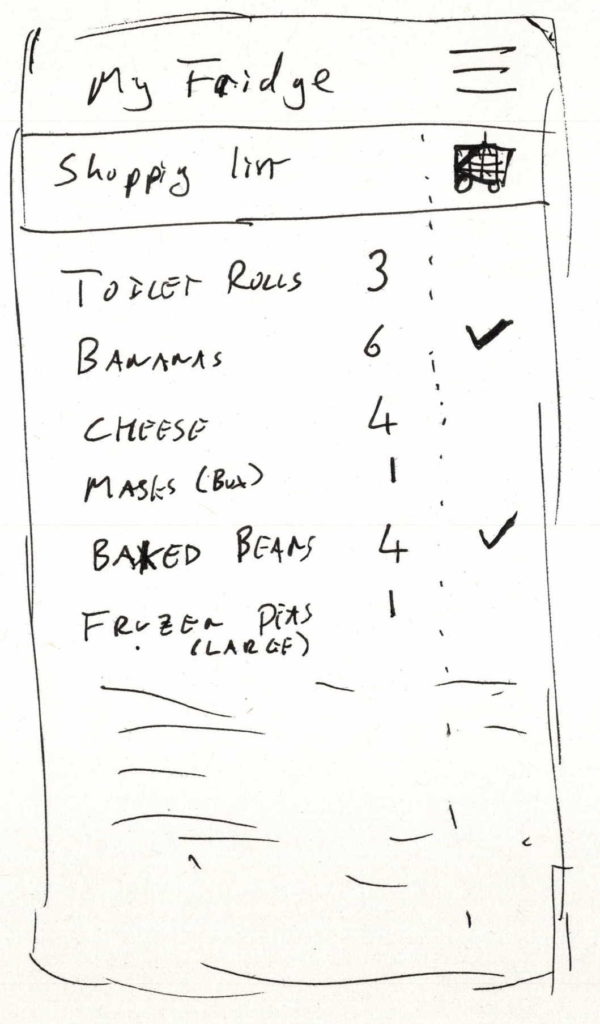 My Fridge
Shopping list
TOILET ROLLS 3
BANANAS 6
CHEESE 4
MASKS (Box) 1
BAKED BEANS 4
FROZEN 1
(LARGE)